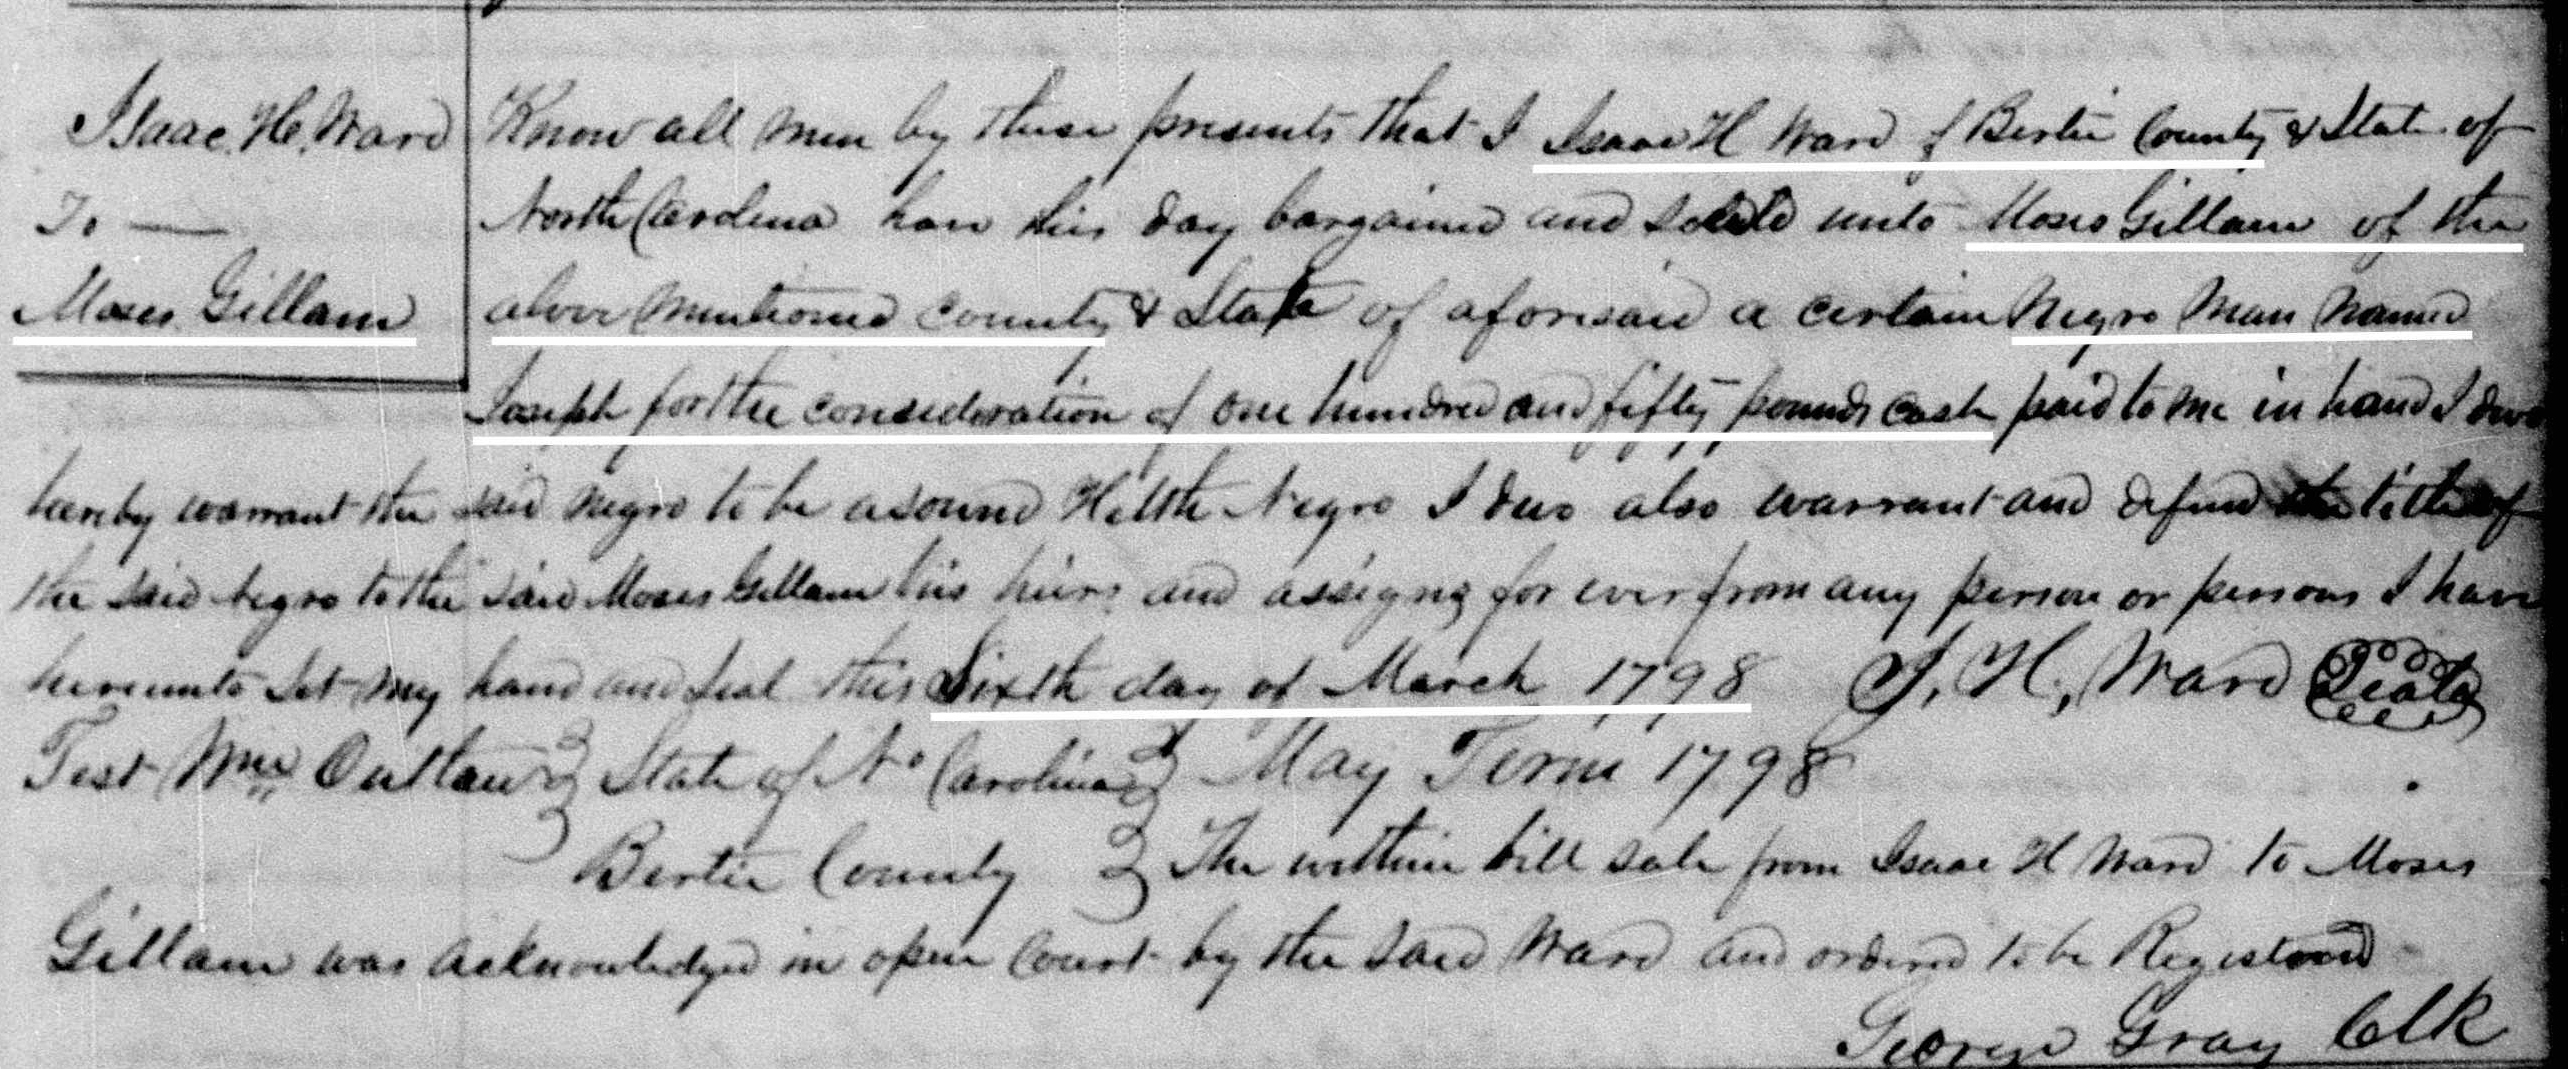 Isaac. H. Ward
To —
Moses Gillam
Know all men by these presents that I Isaac H Ward of Bertie County & State of
North Carolina have this day bargained and sold unto Moses Gillam of the
above mentioned County & State of aforesaid a certain Negro Man named
Joseph for the consideration of one hundred and fifty pounds cash paid to me in hand I doo
hereby warrant the said negro to be a sound Helth Negro I doo also warrant and defend the title of
the said negro to the said Moses Gillam his heirs and assigns for ever from any person or persons I have
hereunto set my hand and seal this Sixth day of March 1798 J. H. Ward Seal
Test Wm Outlaw } State of No Carolina } May Term 1798
Bertie County } The within bill sale from Isaac H Ward to Moses
Gillam was acknowledged in open Court by the said Ward and ordered to be Registered
George Gray Clk